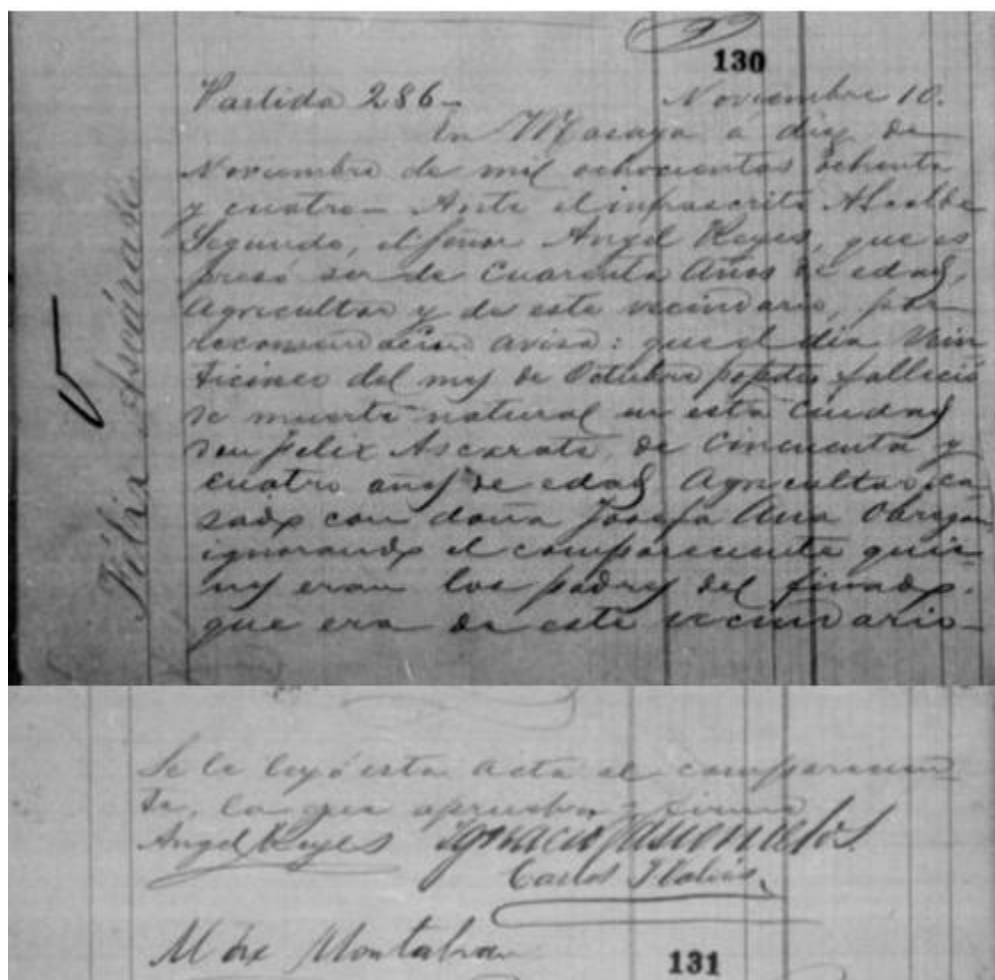 130
Partida 286- Noviembre 10.
En Masaya á diez de
Noviembre de mil ochocientos ochenta
y cuatro- Ante el infrascrito Alcalde
Segundo, el señor Angel Reyes, que es
preso ser de Cuarenta Años de edad,
Agricultor y de este vecindario, por
recomendacion avisa: que el dia Vein
ticinco del mes de Octubre ppdo falleció
de muerte natural en esta Ciudad
Don Felix Ascarate, de Cincuenta y
cuatro años de edad Agricultor, ca
sado con doña Josefa Ana Obregon
ignorando el compareciente quie
nes eran los padres del finado.
que era de este vecindario-
Félix Ascárate
Se le leyó esta acta al comparecien
te, la que aprueba firma
Angel Reyes Ignacio
Carlos
Montalvan
131